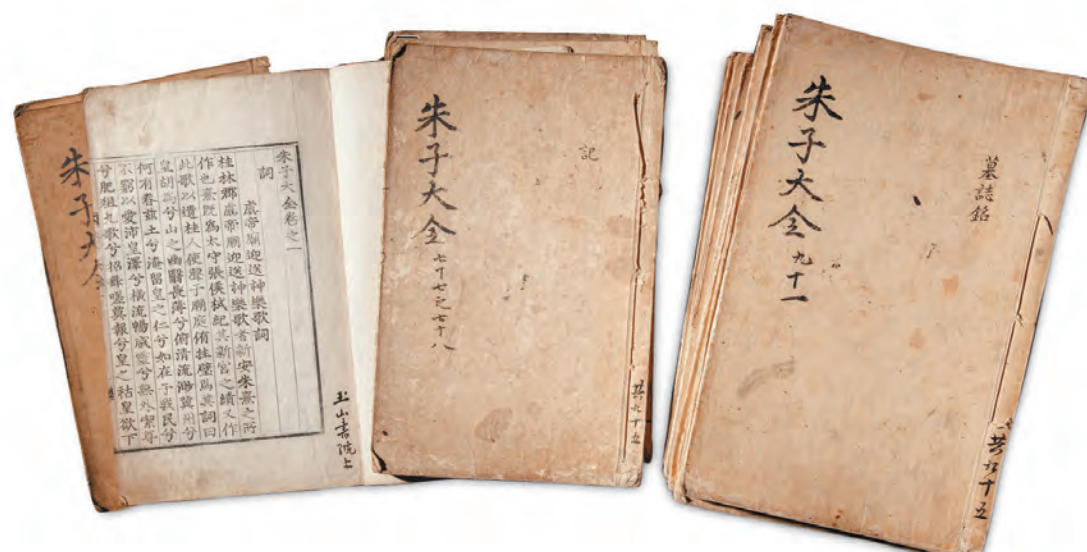 朱子大全
朱子大全卷之一
詞
虞帝廟迎送神樂歌詞
桂林郡虞帝廟迎送神樂歌者新安朱熹之所
作也熹既爲太守張侯栻紀其新宮之績又作
此歌以遺桂人使聲于廟庭侑牲璧焉其詞曰
皇胡爲兮山之幽翳長薄兮俯清流渺冀州兮
何有眷兹土兮淹留皇之仁兮如在子我民兮
不窮以愛沛皇澤兮横流暢威靈兮無外潔尊
兮肥俎九歌兮招舞嗟冀報兮皇之祜皇欲下
玉山書院上
朱子大全 七十七之七十八
記
共九十五
朱子大全 九十一
墓誌銘
共九十五